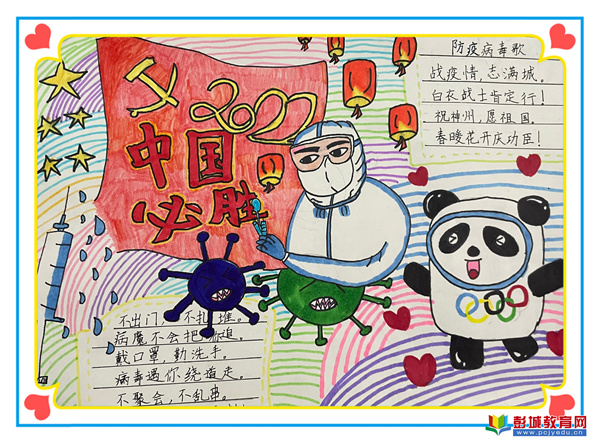 2022
中国
必胜
防疫病毒歌
战疫情,志满城。
白衣战士肯定行!
祝神州,愿祖国。
春暖花开庆功臣!
不出门,不扎堆。
病魔不会把你追。
戴口罩,勤洗手。
病毒遇你绕道走。
不聚会,不乱串。
彭城教育网
www.pcjyedu.cn